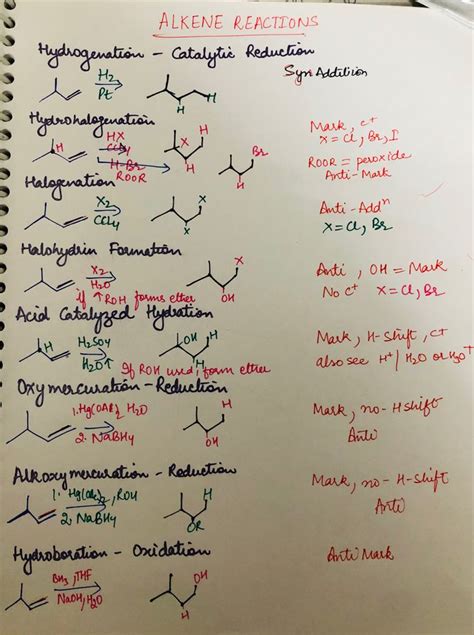 ALKENE REACTIONS
Hydrogenation - Catalytic Reduction
H2
Pt
H
H
Syn Addition
Hydrohalogenation
H
HX
CCl4
H-Br
ROOR
X
H
H
Br
H
Mark, C+
X = Cl, Br, I
ROOR = peroxide
Anti-Mark
Halogenation
X2
CCl4
X
X
Anti-Addn
X = Cl, Br
Halohydrin Formation
X2
H2O
if ↑ROH forms ether
X
OH
Anti, OH = Mark
No C+ X = Cl, Br
Acid Catalyzed Hydration
H
H2SO4
H2O↑
If ROH used, form ether
OH
H
H
Mark, H-shift, C+
also see H+/H2O or H3O+
Oxymercuration - Reduction
1. Hg(OAc)2 H2O
2. NaBH4
H
OH
Mark, no-Hshift
Anti
Alkoxymercuration - Reduction
1. Hg(OAc)2, ROH
2. NaBH4
H
OR
Mark, no-H-shift
Anti
Hydroboration - Oxidation
BH3, THF
NaOH, H2O
OH
H
Anti Mark